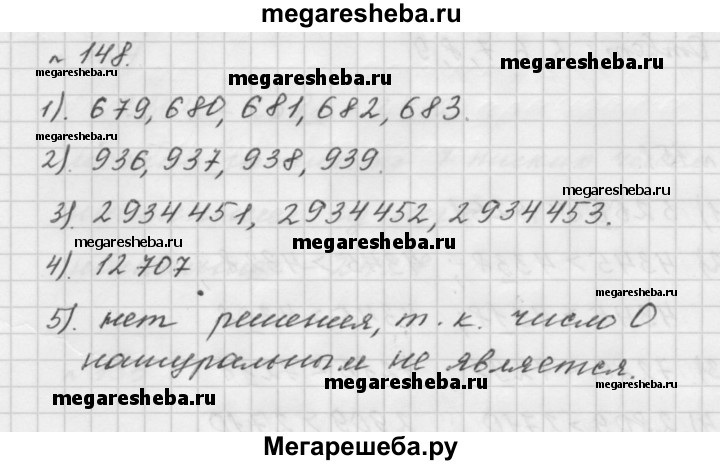 megaresheba.ru
№ 148.
megaresheba.ru
megaresheba.ru
1). 679, 680, 681, 682, 683.
megaresheba.ru
2). 936, 937, 938, 939.
megaresheba.ru
3). 2934451, 2934452, 2934453.
megaresheba.ru
megaresheba.ru
4). 12707
megaresheba.ru
5). нет решения, т. к. число 0
натуральным не является.
megaresheba.ru
megaresheba.ru
megaresheba.ru
Мегарешеба.ру